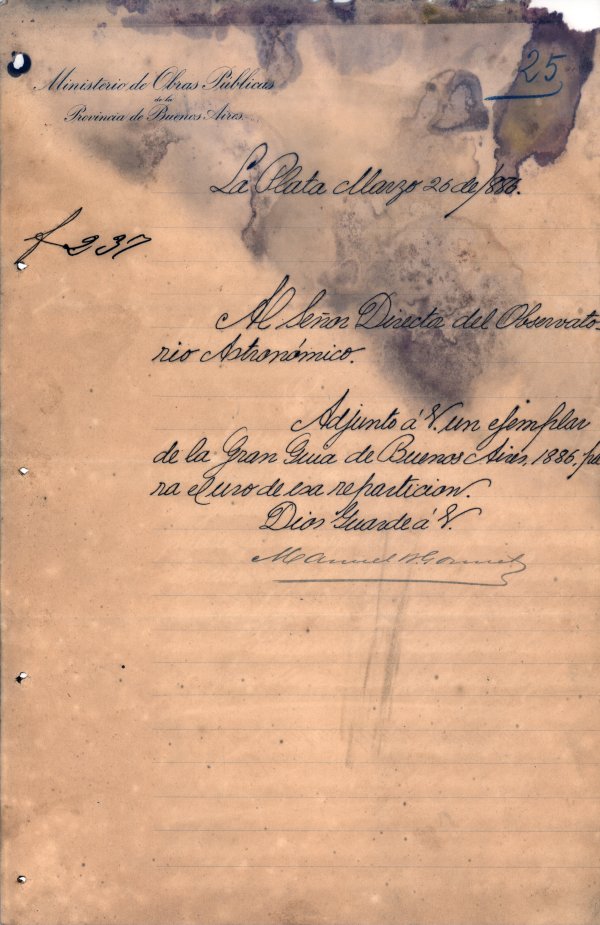 25
Ministerio de Obras Públicas
de la
Provincia de Buenos Aires
La Plata Marzo 26 de 1886.
237
Al Señor Director del Observato-
rio Astronómico.
Adjunto á V. un ejemplar
de la Gran Guia de Buenos Aires, 1886, pa
ra el uso de esa reparticion.
Dios Guarde á V.
Manuel B. Gonnet